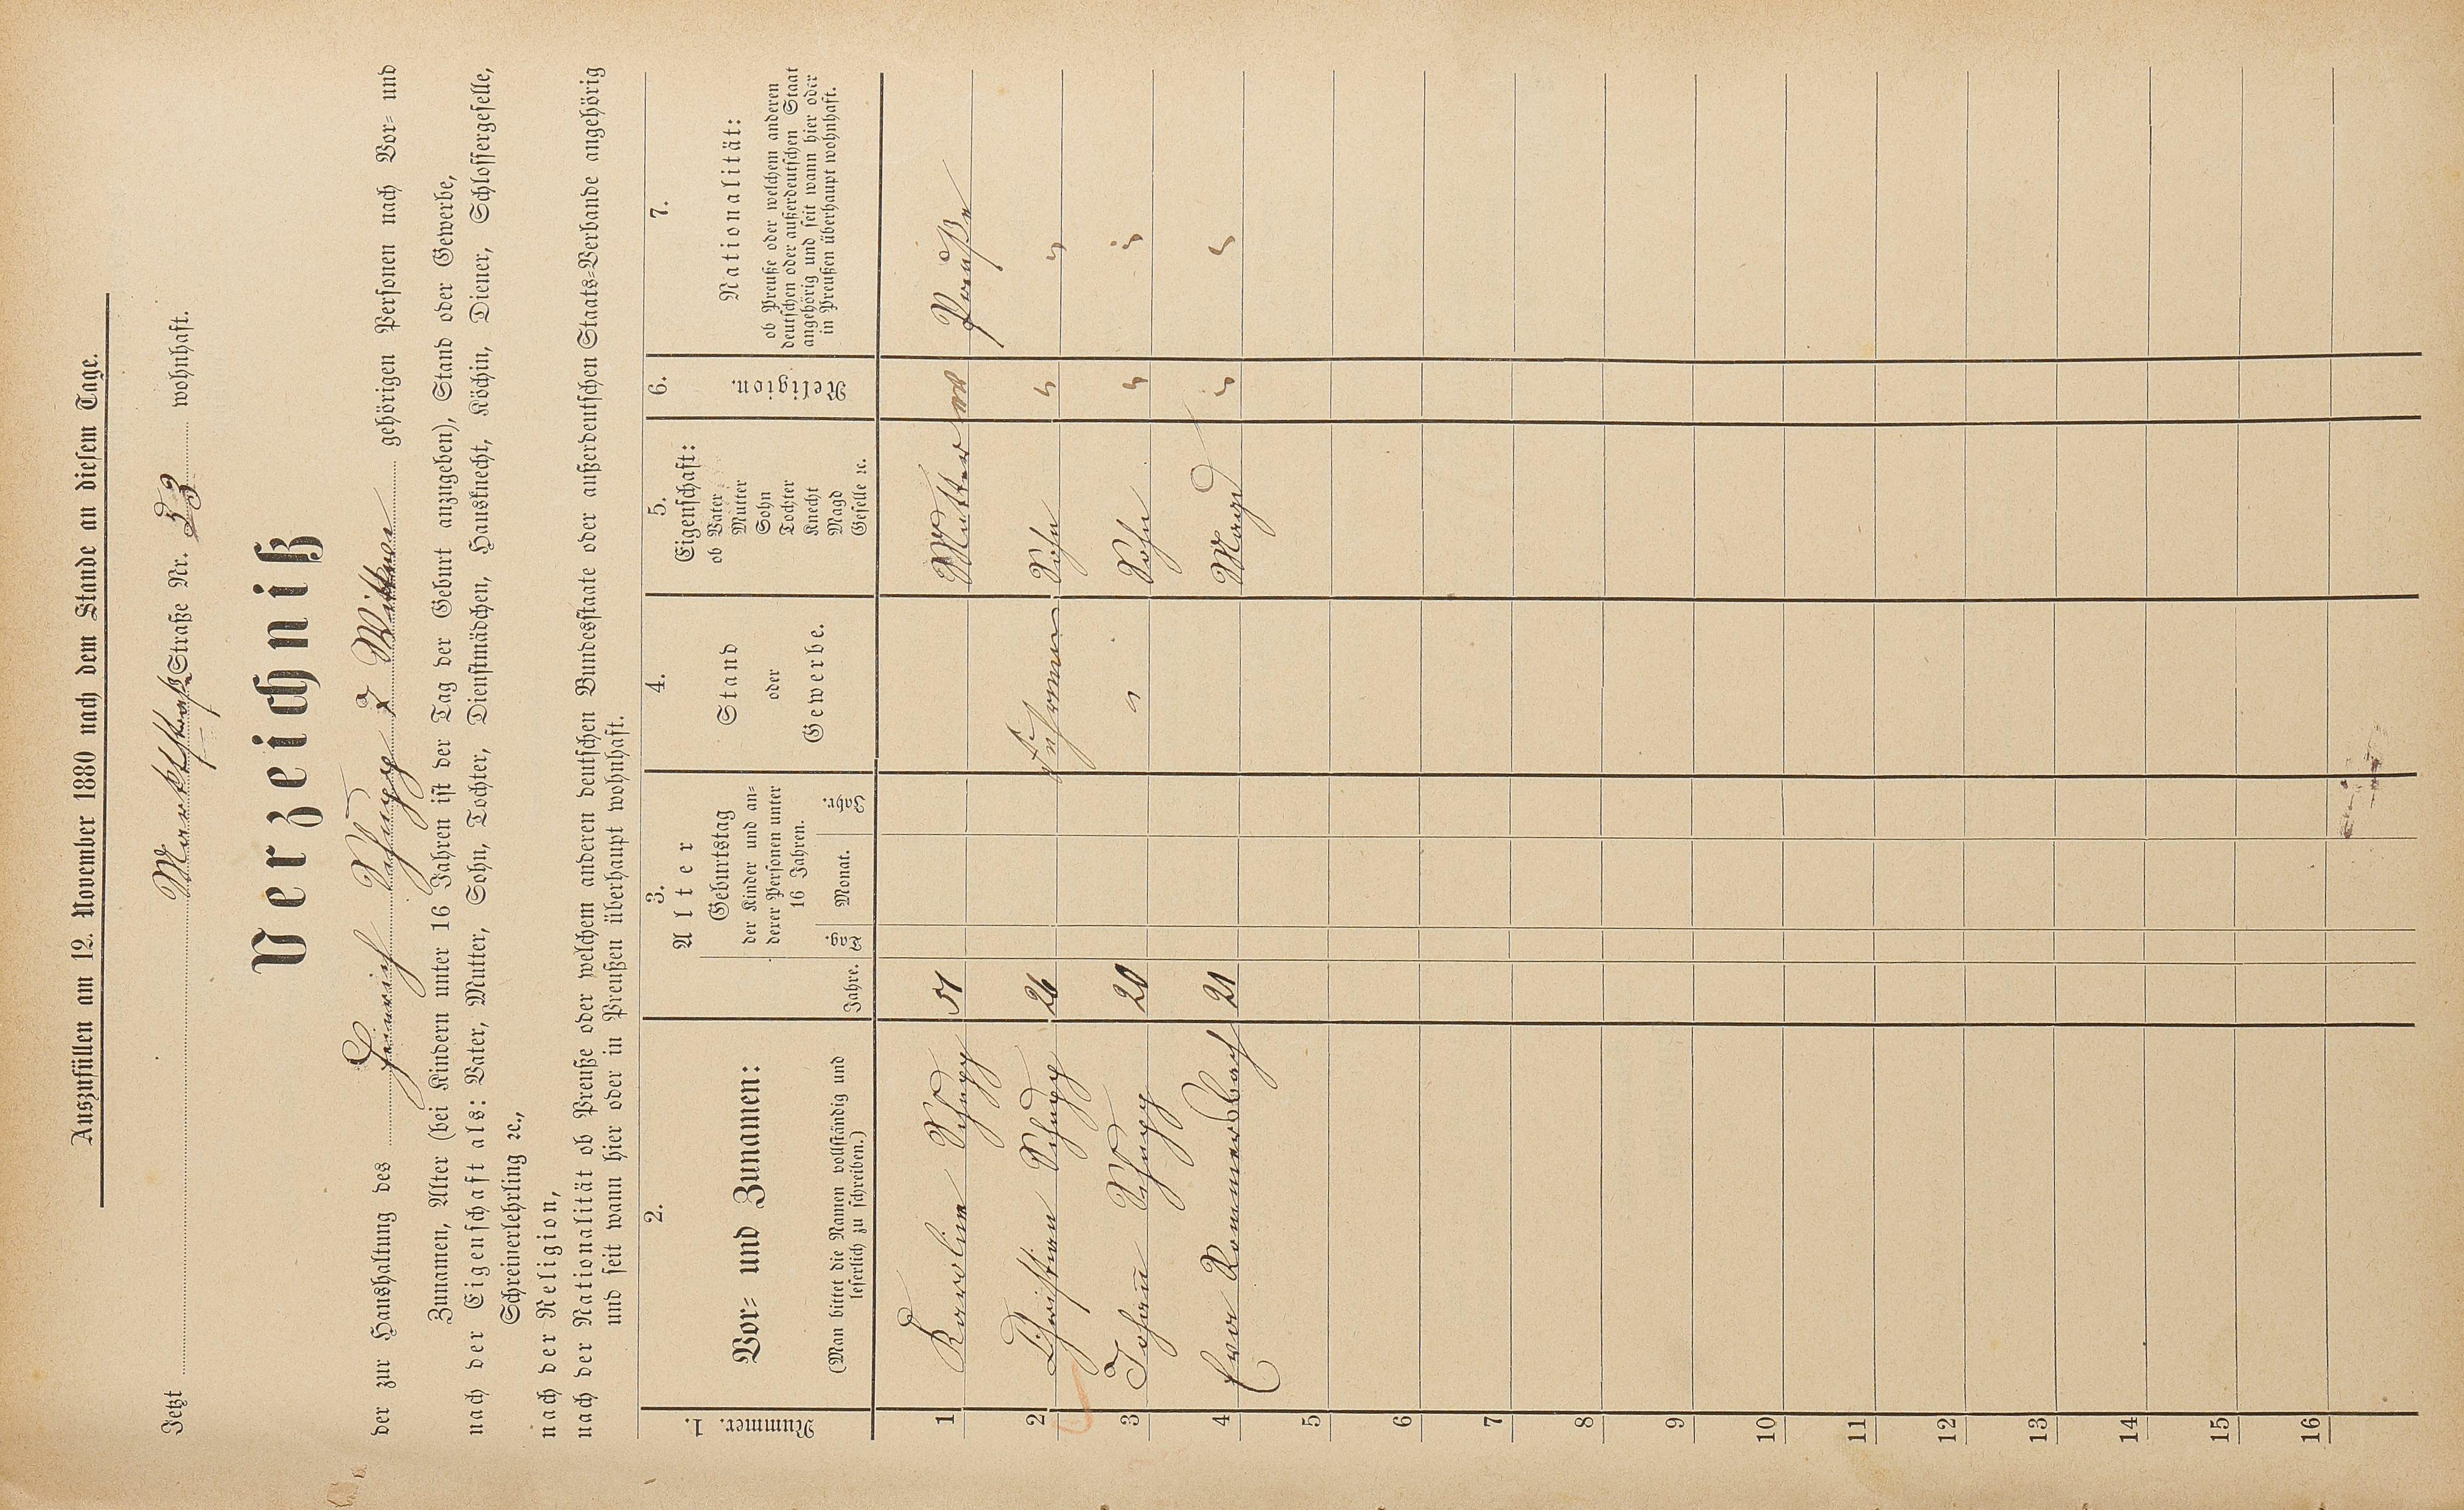 Auszufüllen am 12. November 1880 nach dem Stande an diesem Tage.
Jetzt Marktstraße Straße Nr. 23 wohnhaft.
Verzeichniß
der zur Haushaltung des Heinrich Schupp 2 Wittwe gehörigen Personen nach Vor- und
Zunamen, Alter (bei Kindern unter 16 Jahren ist der Tag der Geburt anzugeben), Stand oder Gewerbe,
nach der Eigenschaft als: Vater, Mutter, Sohn, Tochter, Dienstmädchen, Hausknecht, Köchin, Diener, Schlossergeselle,
Schreinerlehrling ꝛc.,
nach der Religion,
nach der Nationalität ob Preuße oder welchem anderen deutschen Bundesstaate oder außerdeutschen Staats-Verbande angehörig
und seit wann hier oder in Preußen überhaupt wohnhaft.
1. Nummer.
2. Vor- und Zunamen:
(Man bittet die Namen vollständig und
leserlich zu schreiben.)
3. Alter
Jahre.
Geburtstag
der Kinder und an-
derer Personen unter
16 Jahren.
Tag. Monat. Jahr.
4. Stand
oder
Gewerbe.
5. Eigenschaft:
ob Vater
Mutter
Sohn
Tochter
Knecht
Magd
Geselle ꝛc.
6. Religion.
7. Nationalität:
ob Preuße oder welchem anderen
deutschen oder außerdeutschen Staat
angehörig und seit wann hier oder
in Preußen überhaupt wohnhaft.
1 Karoline Schupp 51 Mutter ev Preuße
2 Christian Schupp 26 Fuhrmann Sohn " "
3 Johañ Schupp 20 " Sohn " "
4 Eva Rommersbach 21 Magd " "
5
6
7
8
9
10
11
12
13
14
15
16